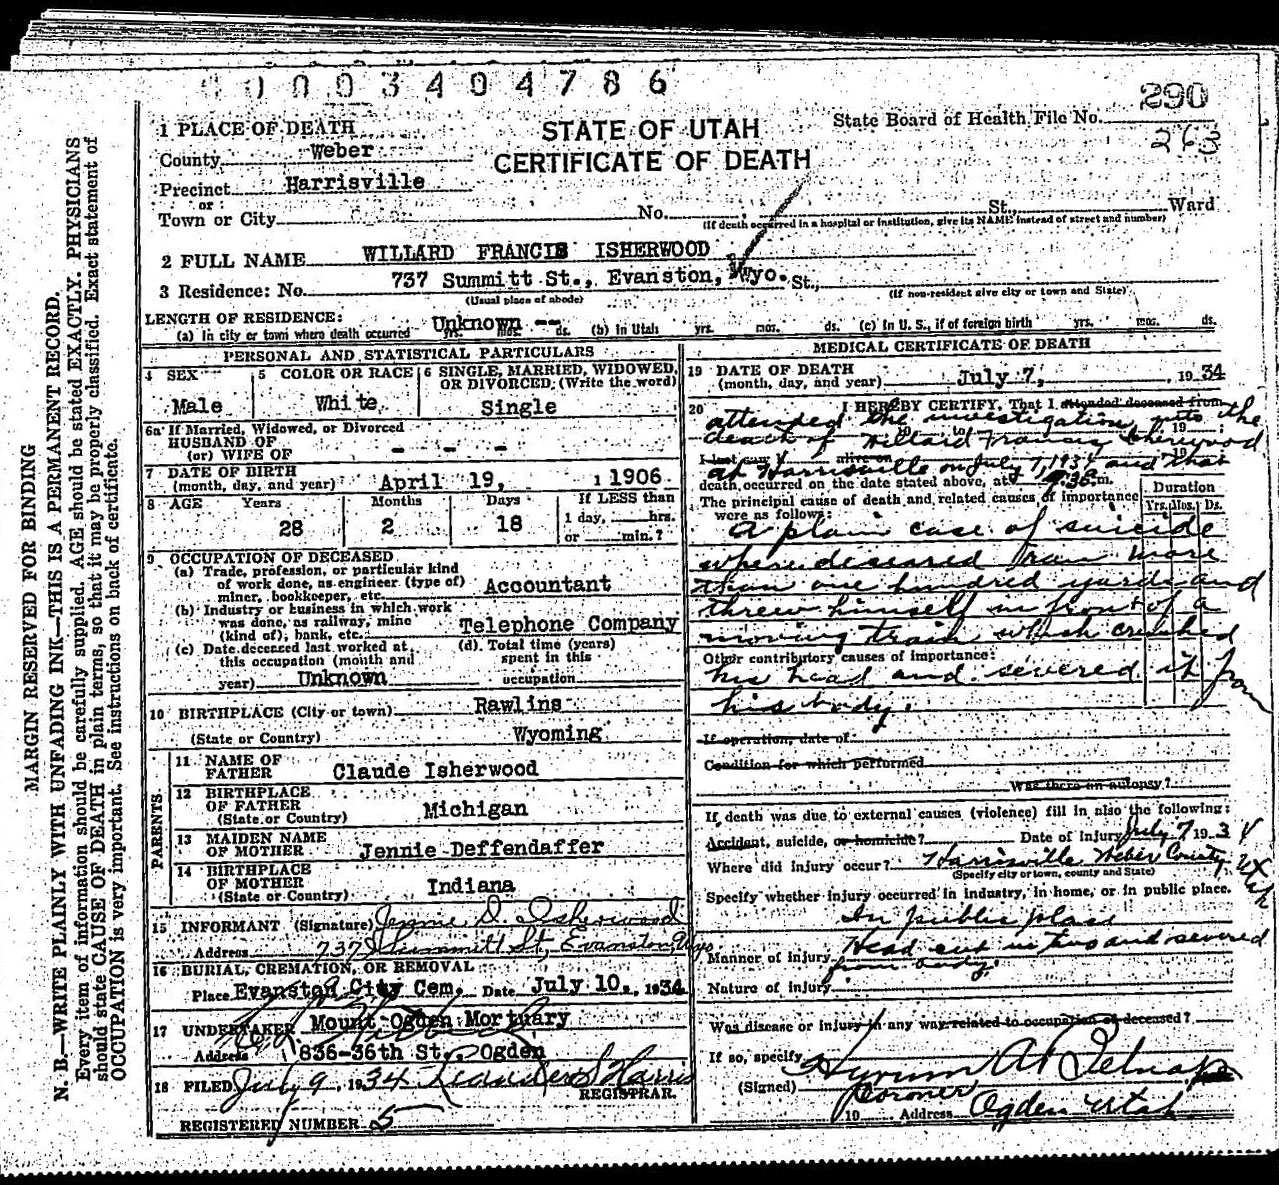 0003404786
290
263
STATE OF UTAH
CERTIFICATE OF DEATH
State Board of Health File No.
1 PLACE OF DEATH
County Weber
Precinct Harrisville
or
Town or City No. St., Ward
(If death occurred in a hospital or institution, give its NAME instead of street and number)
2 FULL NAME WILLARD FRANCIS ISHERWOOD
3 Residence: No. 737 Summitt St., Evanston, Wyo. St.,
(Usual place of abode) (If non-resident give city or town and State)
LENGTH OF RESIDENCE:
(a) In city or town where death occurred Unknown -- yrs. mos. ds. (b) In Utah yrs. mos. ds. (c) In U. S., if of foreign birth yrs. mos. ds.
PERSONAL AND STATISTICAL PARTICULARS
4 SEX Male
5 COLOR OR RACE White
6 SINGLE, MARRIED, WIDOWED, OR DIVORCED: (Write the word) Single
6a If Married, Widowed, or Divorced
HUSBAND OF
(or) WIFE OF - - - -
7 DATE OF BIRTH
(month, day, and year) April 19, 1906
8 AGE Years 28 Months 2 Days 18 If LESS than
1 day, hrs.
or min.?
9 OCCUPATION OF DECEASED
(a) Trade, profession, or particular kind
of work done, as engineer (type of)
miner, bookkeeper, etc. Accountant
(b) Industry or business in which work
was done, as railway, mine
(kind of), bank, etc. Telephone Company
(c) Date deceased last worked at
this occupation (month and
year) Unknown
(d). Total time (years)
spent in this
occupation
10 BIRTHPLACE (City or town) Rawlins
(State or Country) Wyoming
PARENTS
11 NAME OF
FATHER Claude Isherwood
12 BIRTHPLACE
OF FATHER
(State or Country) Michigan
13 MAIDEN NAME
OF MOTHER Jennie Deffendaffer
14 BIRTHPLACE
OF MOTHER
(State or Country) Indiana
15 INFORMANT (Signature) Jennie D. Isherwood
Address 737 Summitt St, Evanston, Wyo
16 BURIAL, CREMATION, OR REMOVAL
Place Evanston City Cem. Date July 10, 1934
17 UNDERTAKER Mount Ogden Mortuary
Address 836-36th St., Ogden
18 FILED July 9, 1934 Leander S Harris
REGISTRAR.
REGISTERED NUMBER 5
MEDICAL CERTIFICATE OF DEATH
19 DATE OF DEATH
(month, day, and year) July 7, 1934
20 I HEREBY CERTIFY, That I attended deceased from
attended the investigation into the
19 to 19
death of Willard Francis Isherwood
I last saw alive on 19
at Harrisville on July 7, 1934 and that
death occurred on the date stated above, at 9:36 a m.
The principal cause of death and related causes of importance
were as follows:
Duration
Yrs. Mos. Ds.
A plain case of suicide
when deceased ran more
than one hundred yards and
threw himself in front of a
moving train which crushed
Other contributory causes of importance:
his head and severed it from
his body.
If operation, date of
Condition for which performed
Was there an autopsy?
If death was due to external causes (violence) fill in also the following:
Accident, suicide, or homicide? Date of injury July 7 1934
Where did injury occur? Harrisville Weber County Utah
(Specify city or town, county and State)
Specify whether injury occurred in industry, in home, or in public place.
In public place
Manner of injury Head cut in two and severed
from body.
Nature of injury
Was disease or injury in any way related to occupation of deceased?
If so, specify
(Signed) Hyrum A Belnap
Coroner
19 Address Ogden Utah
MARGIN RESERVED FOR BINDING
N. B.—WRITE PLAINLY WITH UNFADING INK—THIS IS A PERMANENT RECORD.
Every item of information should be carefully supplied. AGE should be stated EXACTLY. PHYSICIANS
should state CAUSE OF DEATH in plain terms, so that it may be properly classified. Exact statement of
OCCUPATION is very important. See instructions on back of certificate.